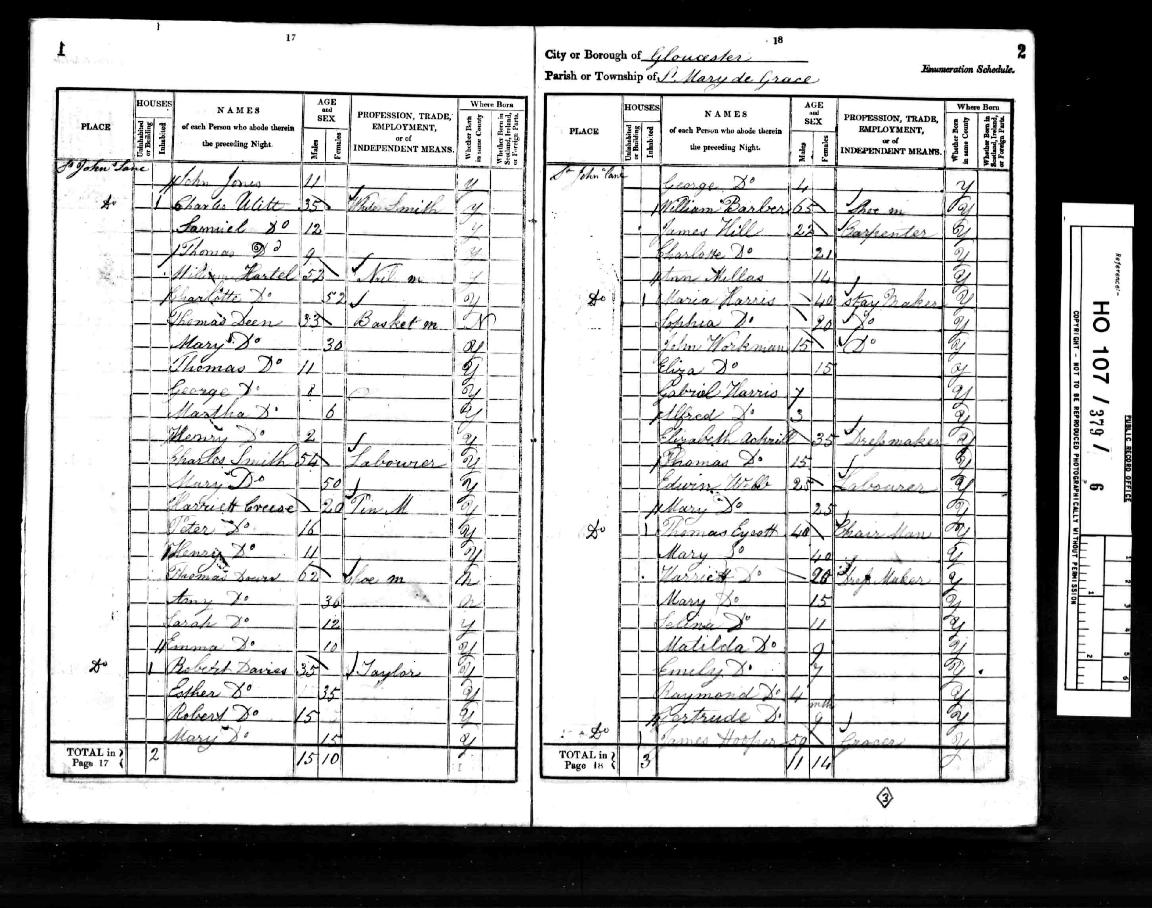 1
17
PLACE
HOUSES
Uninhabited or Building
Inhabited
NAMES
of each Person who abode therein
the preceding Night.
AGE
and
SEX
Males
Females
PROFESSION, TRADE,
EMPLOYMENT,
or of
INDEPENDENT MEANS.
Where Born
Whether Born in same County
Whether Born in Scotland, Ireland, or Foreign Parts.
St John Lane John Jones 11 Y
Do 1 Charles 35 White Smith Y
Samuel Do 12 Y
Thomas Do 9 Y
52 Nail m Y
Charlotte Do 52 Y
Thomas Deen 33 Basket m N
Mary Do 30 Y
Thomas Do 11 Y
George Do 8 Y
Martha Do 6 Y
Henry Do 2 Y
Charles Smith 54 Labourer Y
Mary Do 50 Y
Harriett Creese 20 Tin M Y
Peter Do 16 Y
Henry Do 11 Y
Thomas 62 Shoe m N
Amy Do 30 N
Sarah Do 12 Y
Emma Do 10 Y
Do 1 Robert Davies 35 Taylor Y
Esther Do 35 Y
Robert Do 15 Y
Mary Do 15 Y
TOTAL in
Page 17 2 15 10
18
2
City or Borough of Gloucester
Enumeration Schedule.
Parish or Township of St Mary de Grace
PLACE
HOUSES
Uninhabited or Building
Inhabited
NAMES
of each Person who abode therein
the preceding Night.
AGE
and
SEX
Males
Females
PROFESSION, TRADE,
EMPLOYMENT,
or of
INDEPENDENT MEANS.
Where Born
Whether Born in same County
Whether Born in Scotland, Ireland, or Foreign Parts.
St John Lane George Do 4 Y
William Barber 65 Shoe m Y
James Hill 22 Carpenter Y
Charlotte Do 21 Y
Ann Millas 14 Y
Do 1 Maria Harris 40 Stay Maker Y
Sophia Do 20 Do Y
John Workman 15 Do Y
Eliza Do 15 Y
Gabriel Harris 7 Y
Alfred Do 3 Y
Elizabeth 35 Dressmaker Y
Thomas Do 15 Y
Edwin Webb 25 Labourer Y
Mary Do 25 Y
Do 1 Thomas 40 Chair Man Y
Mary Do 40 Y
Harriett Do 20 Dress Maker Y
Mary Do 15 Y
Selina Do 11 Y
Matilda Do 9 Y
Emily Do 7 Y
Raymond Do 4 Y
Gertrude Do 9 mths Y
Do 1 James Hooper 59 Grocer Y
TOTAL in
Page 18 3 11 14
3
Reference:-
HO 107 / 379 / 6
PUBLIC RECORD OFFICE
COPYRIGHT - NOT TO BE REPRODUCED PHOTOGRAPHICALLY WITHOUT PERMISSION
1
2
1
2
3
4
5
6